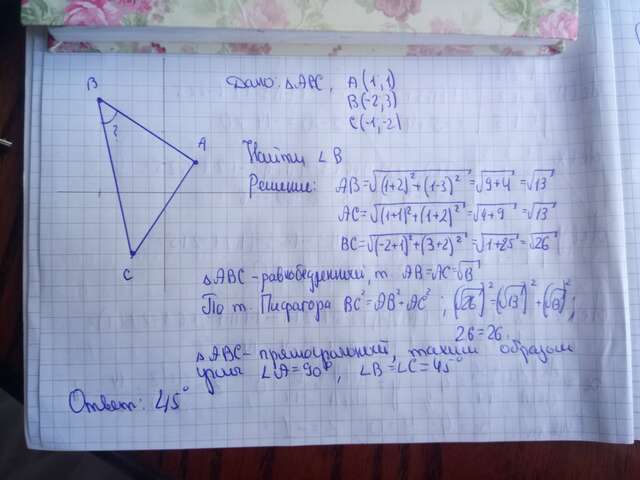 Дано: △ABC, A(1,1)
B(-2;3)
C(-1,-2)
Найти ∠B
Решение: AB=√(1+2)²+(1-3)²=√9+4=√13
AC=√(1+1)²+(1+2)²=√4+9=√13
BC=√(-2+1)²+(3+2)²=√1+25=√26
△ABC-равнобедренный, т AB=AC=√13
По т. Пифагора BC²=AB²+AC²; (√26)²=(√13)²+(√13)²;
26=26.
△ABC-прямоугольный, таким образом
углы ∠A=90°, ∠B=∠C=45°
Ответ: 45°
B
?
A
C